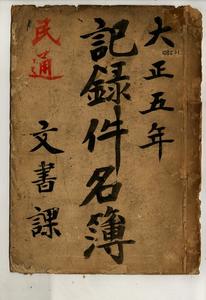 大正五年
記録件名簿
民通
文書課